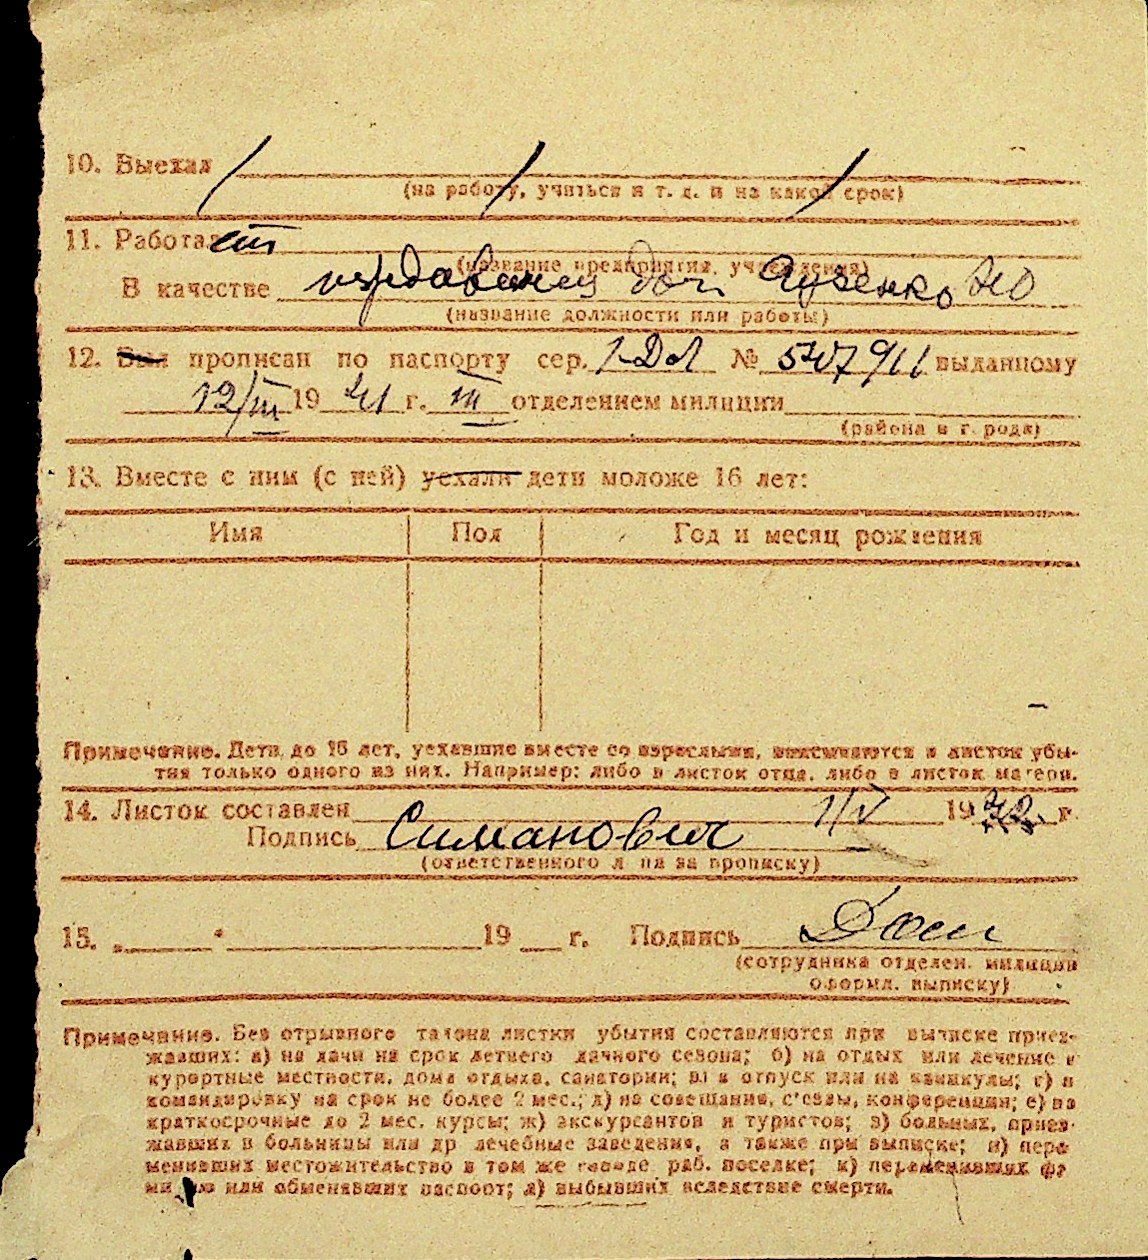 10. Выехал
(на работу, учиться и т. д. и на какой срок)
11. Работал
(название предприятия, учреждения)
В качестве иждивенец дочь
(название должности или работы)
12. Был прописан по паспорту сер. № 507911 выданному
12/III 1941 г. III отделением милиции
(района в г. рода)
13. Вместе с ним (с ней) уехали дети моложе 16 лет:
Имя Пол Год и месяц рождения
Примечание. Дети до 16 лет, уехавшие вместе со взрослыми, вписываются в листок убы-
тия только одного из них. Например: либо в листок отца, либо в листок матери.
14. Листок составлен 1/V 1942 г.
Подпись Симанович
(ответственного л ца за прописку)
15. „ “ 19 г. Подпись
(сотрудника отделен. милиции
оформл. выписку)
Примечание. Без отрывного талона листки убытия составляются при выписке приез-
жавших: а) на дачи на срок летнего дачного сезона; б) на отдых или лечение в
курортные местности, дома отдыха, санатории; в) в отпуск или на каникулы; г) в
командировку на срок не более 2 мес.; д) на совещания, с'езды, конференции; е) на
краткосрочные до 2 мес. курсы; ж) экскурсантов и туристов; з) больных, приез-
жавших в больницы или др лечебные заведения, а также при выписке; и) пере
менивших местожительство в том же городе, раб. поселке; к) переменивших фа
ми ию или обменявших паспорт; л) выбывших вследствие смерти.